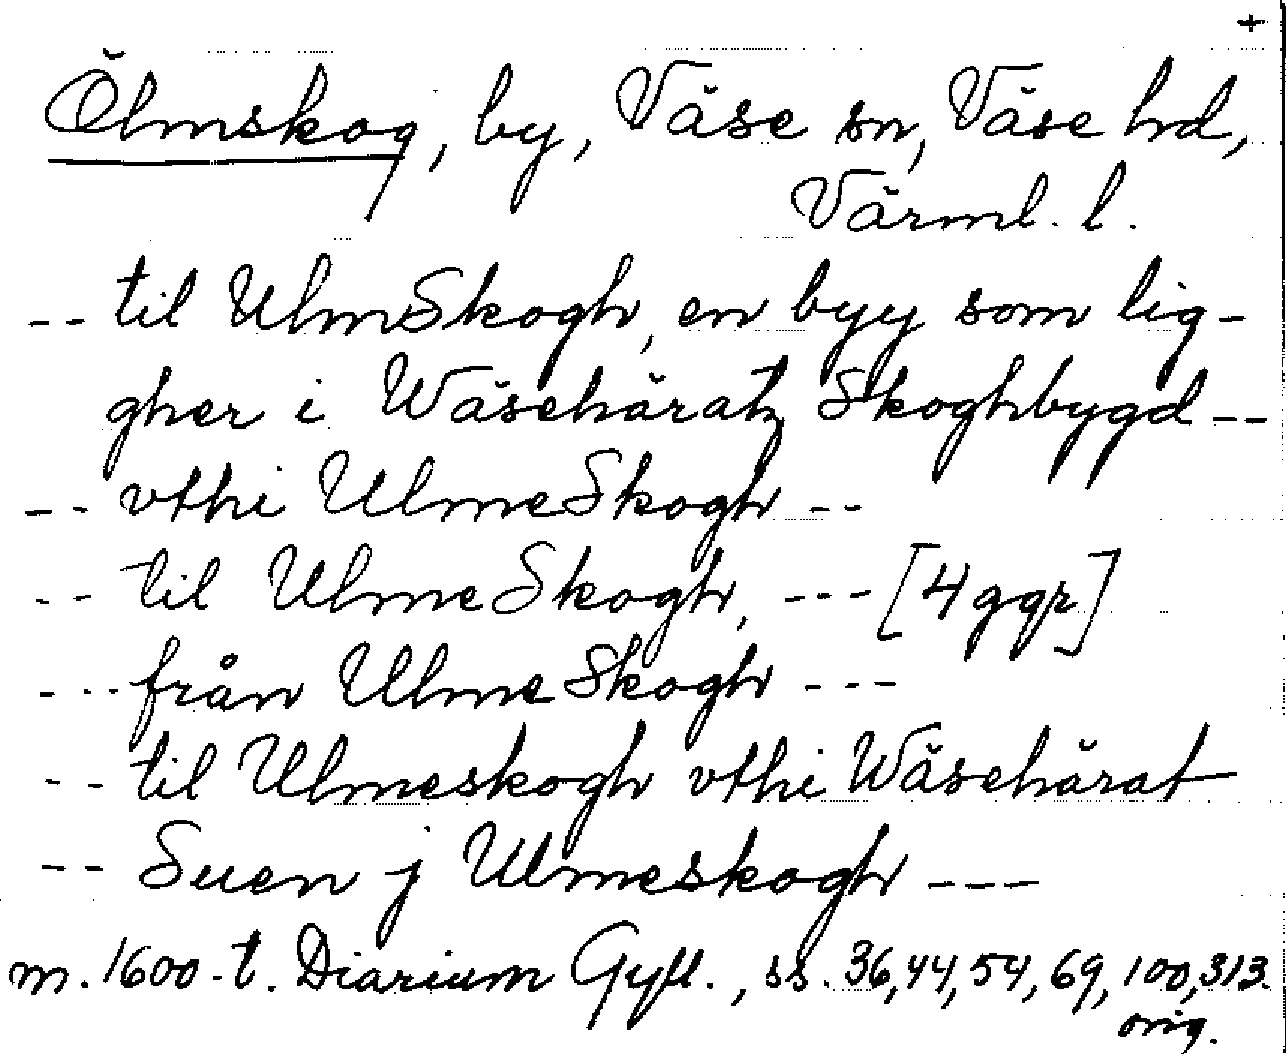 +
Ölmskog, by, Väse sn, Väse hd,
Värml. l.
-- til UlmSkogh, en byy som lig-
gher i Wäsehäratz Skoghbygd --
-- vthi UlmeSkogh --
-- til UlmeSkogh, --- [4 ggr]
--- från UlmeSkogh ---
-- til Ulmeskogh vthi Wäsehärat
-- Suen j Ulmeskogh ---
m. 1600-t. Diarium Gyll., ss. 36, 44, 54, 69, 100, 313.
orig.